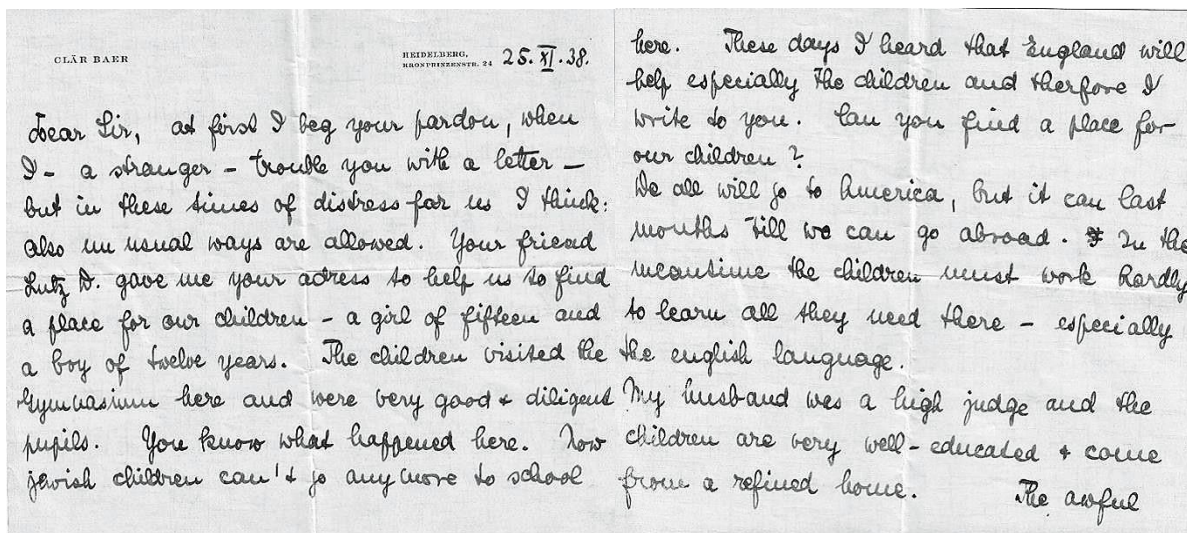 CLÄR BAER
HEIDELBERG,
KRONPRINZENSTR. 24
25. XI. 38.
Dear Sir, at first I beg your pardon, when
I - a stranger - trouble you with a letter -
but in these times of distress for us I think:
also un usual ways are allowed. Your friend
Lutz D. gave me your adress to help us to find
a place for our children - a girl of fifteen and
a boy of twelve years. The children visited the
Gymnasium here and were very good + diligent
pupils. You know what happened here. Now
jewish children can't go any more to school
here. These days I heard that England will
help especially the children and therfore I
write to you. Can you find a place for
our children?
We all will go to America, but it can last
months till we can go abroad. In the
meantime the children must work hardly
to learn all they need there - especially
the english language.
My husband was a high judge and the
children are very well-educated + come
from a refined home. The awful